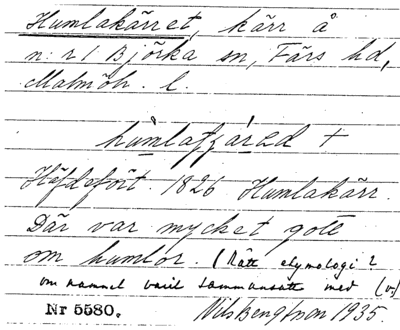 Humlakärret, kärr å
n:r 1 Björka sn, Färs hd,
Malmöh. l.
humlatjäred +
Häfdefört 1826 Humlakärr.
Där var mycket gott
om humlor. (Rätt etymologi?
om namnet varit sammansatt med
Nr 5580. Nils Bengtsson 1935.